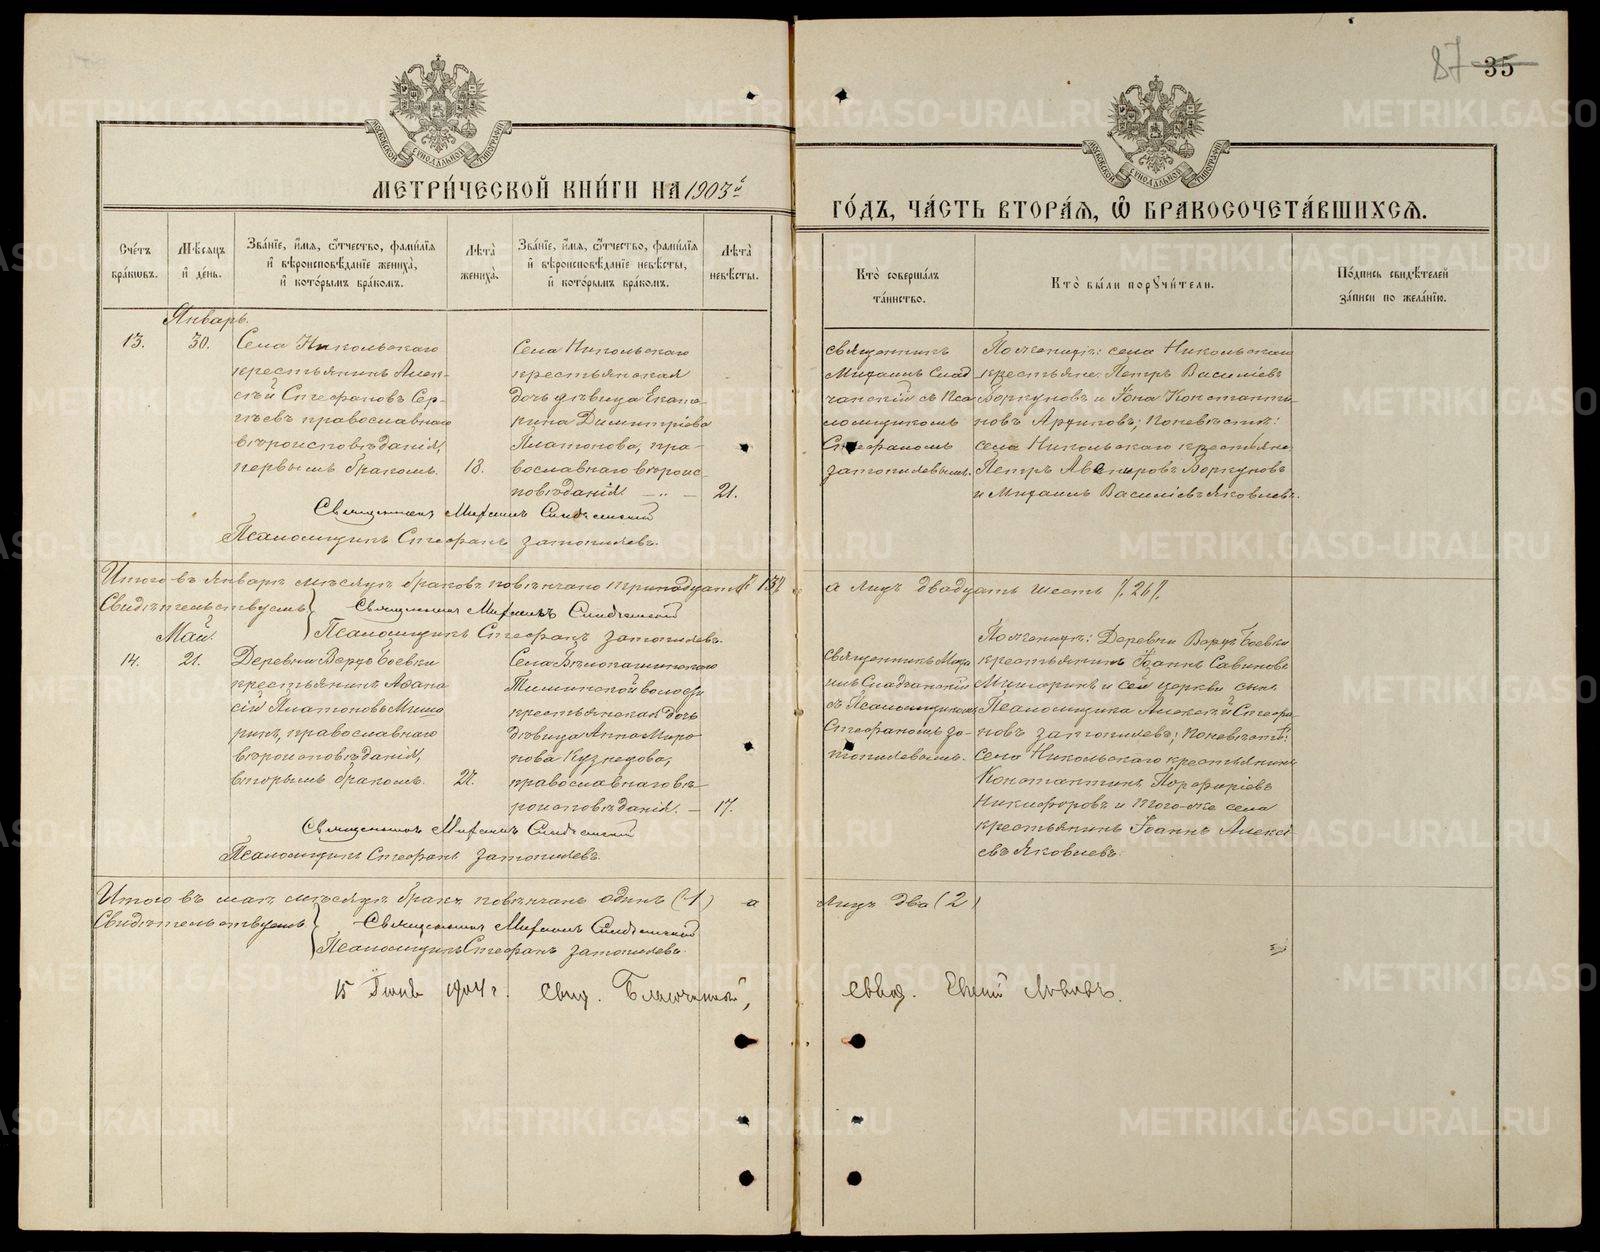 87 35
МОСКОВСКОЙ СѴНОДАЛЬНОЙ ТИПОГРАФІИ
МОСКОВСКОЙ СѴНОДАЛЬНОЙ ТИПОГРАФІИ
МЕТРИ́ЧЕСКОЙ КНИ́ГИ НА 1903й
ГО́ДЪ, ЧА́СТЬ ВТОРА́Я, Ѽ БРАКОСОЧЕТА́ВШИХСЯ.
Сче́тъ
бра́кѡвъ.
Мѣ́сяцъ
и҆ де́нь.
Зва́нїе, и҆́мя, ѻ҆́тчество, фами́лїя
и҆ вѣроисповѣ́данїе жениха̀,
и҆ кото́рымъ бра́комъ.
Лѣта̀
жениха̀.
Зва́нїе, и҆́мя, ѻ҆́тчество, фами́лїя
и҆ вѣроисповѣ́данїе невѣ́сты,
и҆ кото́рымъ бра́комъ.
Лѣта̀
невѣ́сты.
Кто̀ соверша́лъ
та́инство.
Кто̀ бы́ли порꙋчи́тели.
По́дпись свидѣ́телей
за́писи по жела́нїю.
Январь.
13.
30.
Села Никольскаго
крестьянинъ Алек-
сѣй Стефановъ Сер-
гѣевъ православнаго
вѣроисповѣданія,
первымъ бракомъ.
18.
Села Никольскаго
крестьянская
дочь дѣвица Екате-
рина Димитріева
Платонова, пра-
вославнаго вѣроис-
повѣданія — „ —
21.
Священникъ
Михаилъ Слад-
чанскій съ Пса
ломщикомъ
Стефаномъ
Затопляевымъ.
По женихѣ: села Никольскаго
крестьяне: Петръ Василіевъ
Боркуновъ и Іона Константи-
новъ Архиповъ; по невѣстѣ:
села Никольскаго крестьяне
Петръ Авенировъ Боркуновъ
и Михаилъ Василіевъ Яковлевъ.
Священникъ Михаилъ
Псаломщикъ Стефанъ Затопляевъ.
Итого въ Январѣ мѣсяцѣ браковъ повѣнчано тринадцать /: 13 :/
а лицъ двадцать шесть /: 26 /:
Свидѣтельствуемъ
Священникъ Михаилъ
Псаломщикъ Стефанъ Затопляевъ.
Май.
14.
21.
Деревни Верхъ Боевки
крестьянинъ Афана
сій Платоновъ Миша
ринъ, православнаго
вѣроисповѣданія,
вторымъ бракомъ.
27.
Села
волости
крестьянская дочь
дѣвица Анна Миро
нова Кузнецова,
православнаго вѣ-
роисповѣданія. —
17.
Священникъ Миха
илъ
съ Псаломщикомъ
Стефаномъ За-
топляевымъ.
По женихѣ: Деревни Верхъ Боевки
крестьянинъ Іоаннъ Савиновъ
Мишаринъ и сей церкви сынъ
Псаломщика Алексѣй Стефа-
новъ Затопляевъ; по невѣстѣ:
села Никольскаго крестьянинъ
Константинъ Порфиріевъ
Никифоровъ и того-же села
крестьянинъ Іоаннъ Алексѣ
евъ Яковлевъ.
Священникъ Михаилъ
Псаломщикъ Стефанъ Затопляевъ.
Итого въ маѣ мѣсяцѣ бракъ повѣнчанъ одинъ (1) а
лицъ два (2)
Свидѣтельствуемъ
Священникъ Михаилъ
Псаломщикъ Стефанъ Затопляевъ.
15 Іюня 1904 г. Свид. Благочинный,
METRIKI.GASO-URAL.RU